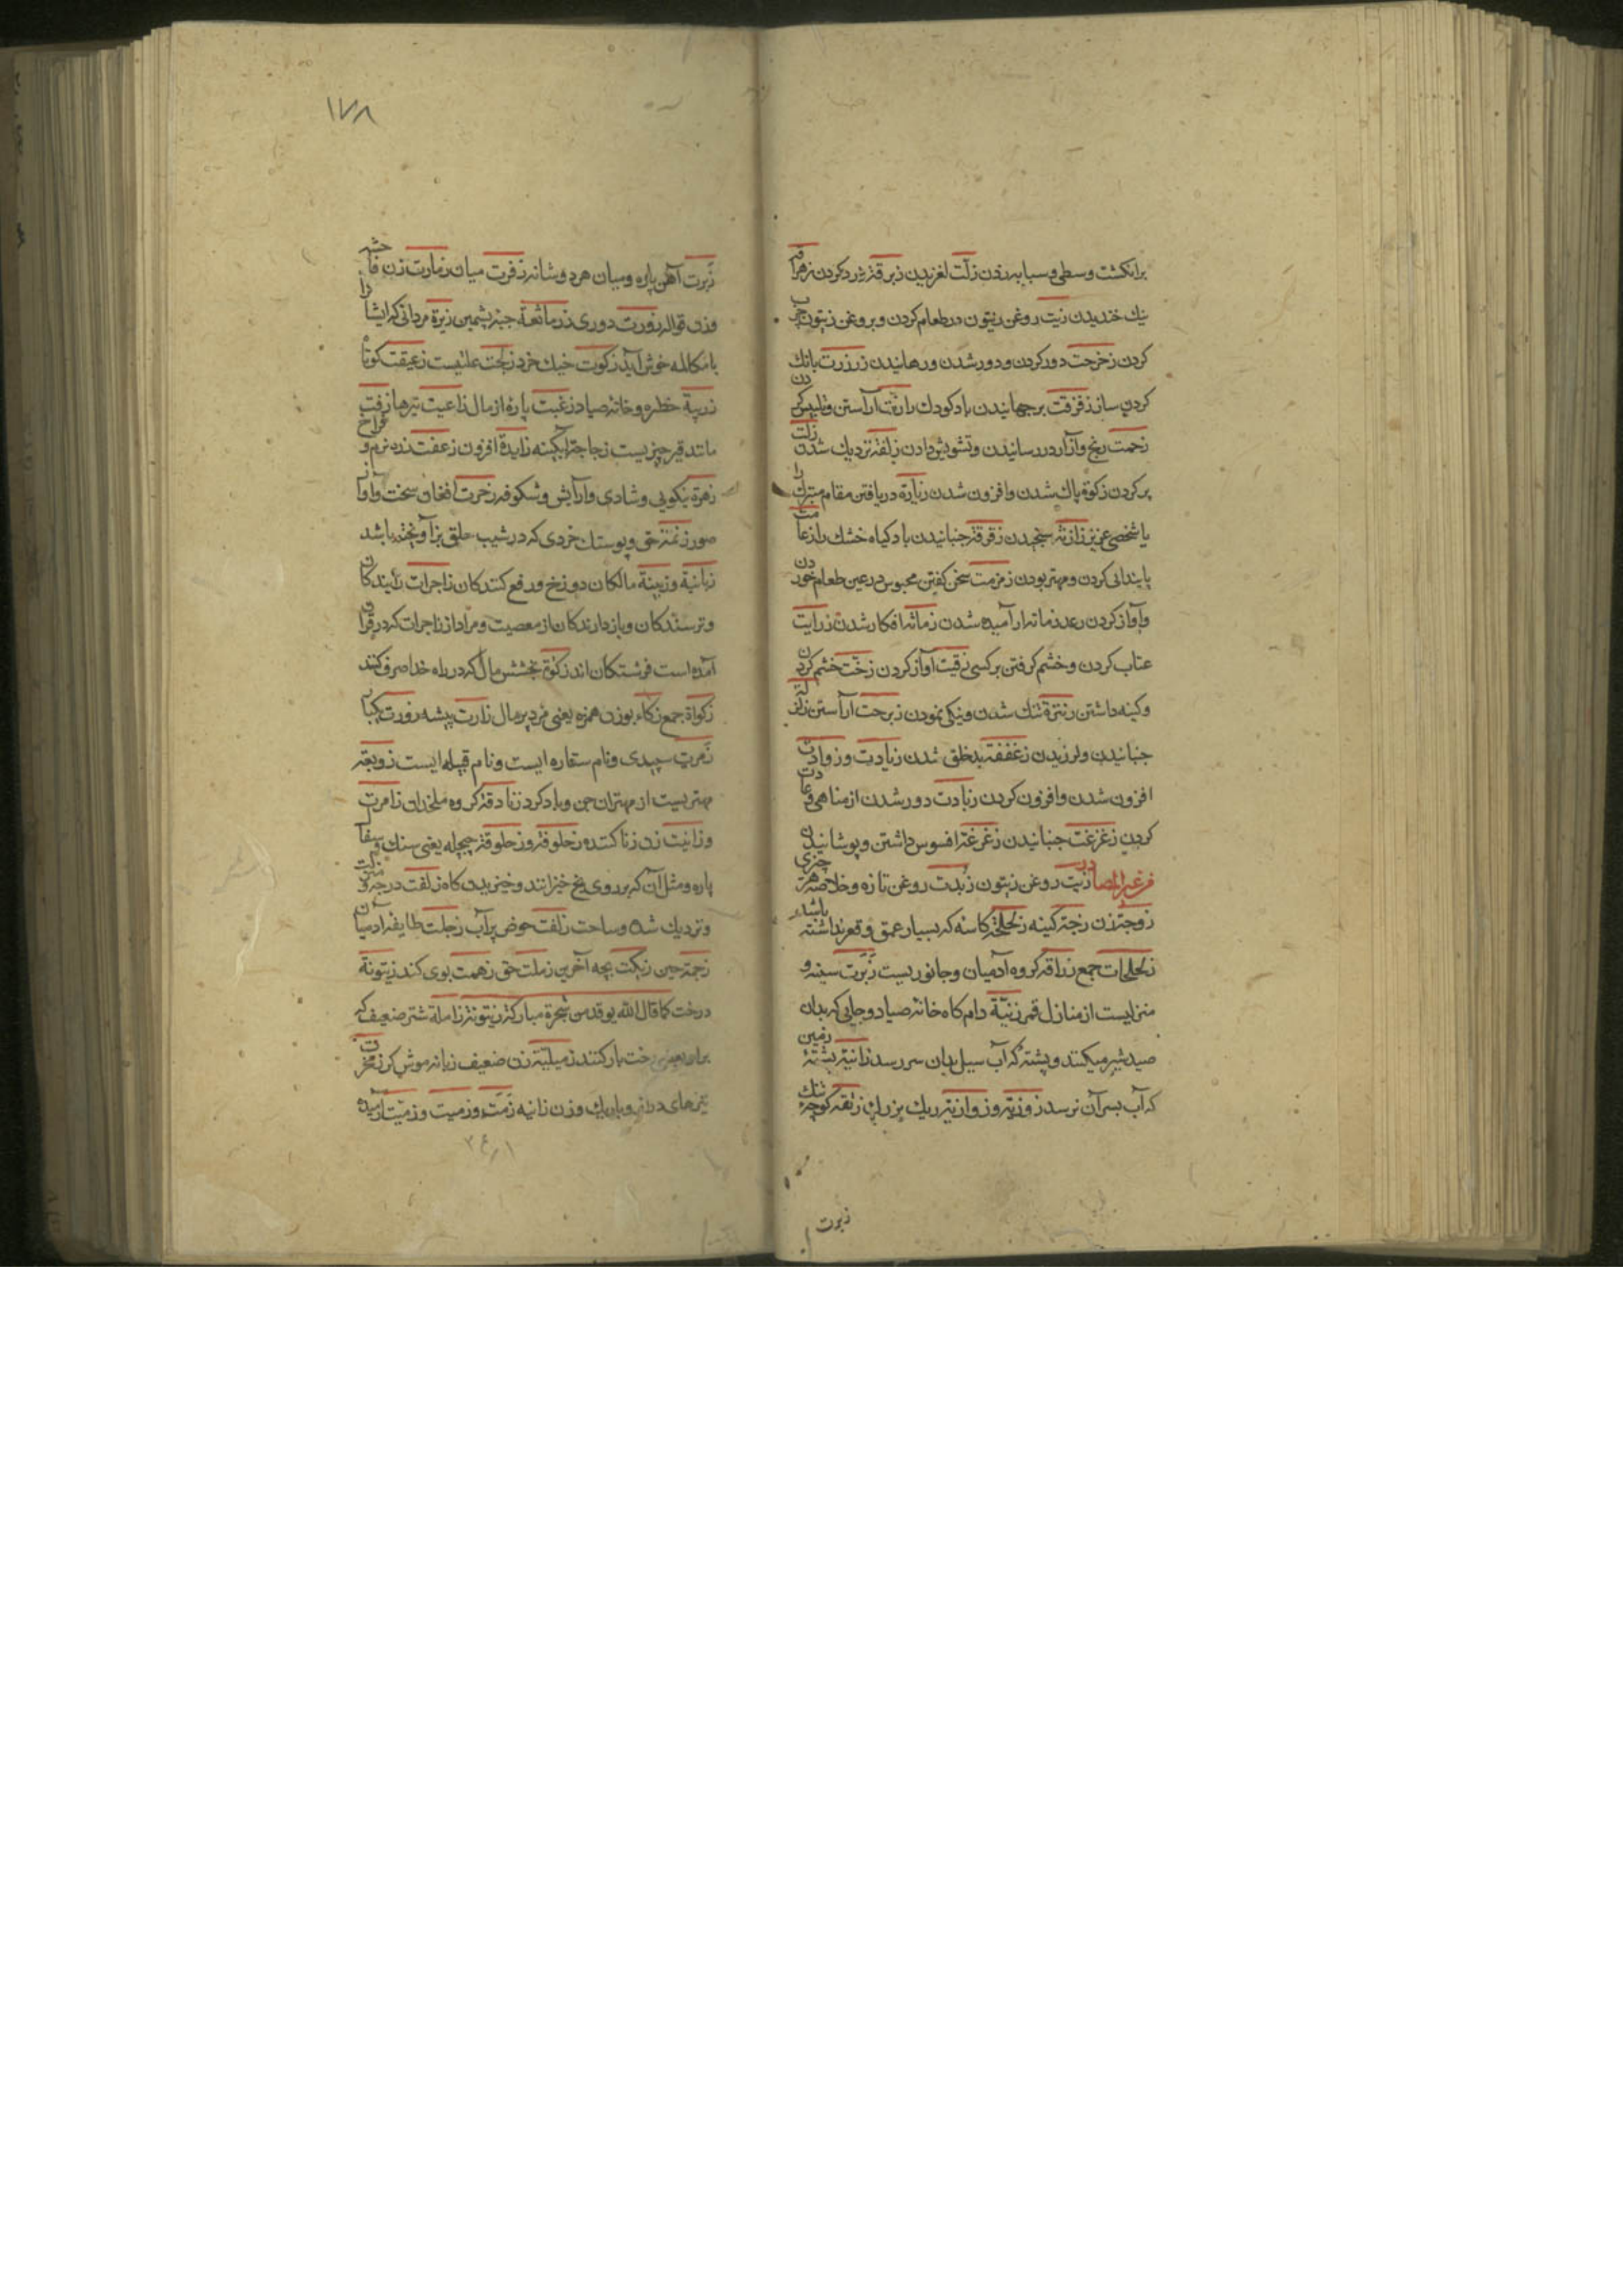 برانکشت وسطی و سبابه زدن زلت لغزیدن زبرقة زرد کردن زهزاقة
نیك خندیدن زیت روغن زیتون در طعام کردن و بروغن زیتون چرب
کردن زحزحت دور کردن و دور شدن و رهانیدن زرزرت بانك
کردن ساز زقزقت برجهانیدن باد کودك را زینت آراستن و تلبیس کردن
زحمت رنج و آزار در رسانیدن و تشویش دادن زلفة نزدیك شدن زلت
پر کردن زکوة پاك شدن و افزون شدن زیارة دریافتن مقام متبرك را
یا شخصی عزیز را زنة سنجیدن زقزقة جنبانیدن باد کیاه خشك را زعامت
پایندانی کردن و مهتر بودن زمزمت سخن کفتن مجوس در عین طعام خوردن
و آواز کردن رعد زمانة آرامیده شدن زمانة افکار شدن زرایت
عتاب کردن و خشم کرفتن بر کسی زقیت آواز کردن زخت خشم کردن
و کینه داشتن زنترة تنك شدن و نیکی نمودن زبرجت آراستن زلزلة
جنبانیدن و لرزیدن زغففة بدخلق شدن زیادت و زوادت
افزون شدن و افزون کردن زهادت دور شدن از مناهی و عادت
کردن زغزغت جنبانیدن زغزغة افسوس داشتن و پوشانیدن
فی غیر المصادر زیت روغن زیتون زبدت روغن تازه و خلاصه هر چیزی
زوجة زن زخة کینه زلحلحة کاسه که بسیار عمق و قعر نداشته باشد
زلحلحات جمع زرافة کروه آدمیان و جانوریست زبرت سینه و
منزلیست از منازل قمر زبیة دام کاه خانه صیاد و جایی که بدان
صید شیر میکنند و پشته که آب سیل بدان سر رسد زانیة پشتهٔ زمین
که آب بسر آن نرسد زوزیة و زوازیة ریك بزرك زنقة کوچهٔ تنك
زبرت
١٧٨
زبرت آهن پاره و میان هر دو شانه زفرت میان زمارت زن فاحشه
وزن قواله زورت دوری زرمانقة جبه پشمین زیرة مردانی که ایشان را
با مکالمه خوش آید زکوت خیك خرد زلخت علتیست زعیقت کوتاه
زربیة خطره و خانه صیاد زغبت پاره از مال زاعبیت نیزها زفت
مانند قیر چیزیست زجاجة آبکینه زایدة افزون زعفت زره نرم و فراخ
زهرة نیکویی و شادی و آرایش و شکوفه زخرت افغان سخت و آواز
صور زنمة حق و پوستك خردی که در شیب حلق بز آویخته باشد
زبانیة و زبینة مالکان دوزخ و رفع کنندکان زاجرات رانیندکان
و ترسندکان و بازدارندکان از معصیت و مراد از زاجرات که در قرآن
آمده است فرشتکان اند زکوة بخشش مال که در راه خدا صرف کنند
زکواة جمع زکاء بوزن همزه یعنی مرد پرمال زارت بیشه زورت یکبار
زهرت سپیدی و نام ستاره ایست و نام قبیله ایست زوبعة
مهتریست از مهتران جن و باد کرد زنادقة کروه ملحدان زامرت
و زانیت زن زنا کننده زحلوقة و زحلوقة چیچله یعنی سنك و سفال
پاره و مثل آن که بر روی یخ خیزانند و خیزیدن کاه زلفت درجه و منزلت
و نزدیك شده و ساحت زلفت حوض پرآب زجلت طایفه آدمیان
زجمة حین زکبت بچه آخرین زملت حق زهمت بوی کند زیتونة
درخت کما قال الله یوقد من شجرة مبارکة زیتونة زاملة شتر ضعیف که
برای رخت بار کنند زمیلیة زن ضعیف زبابة موش کر زمخرت
تیرهای دراز و باریك و زن زانیه زمت و زمیت و زمیت آرمیده